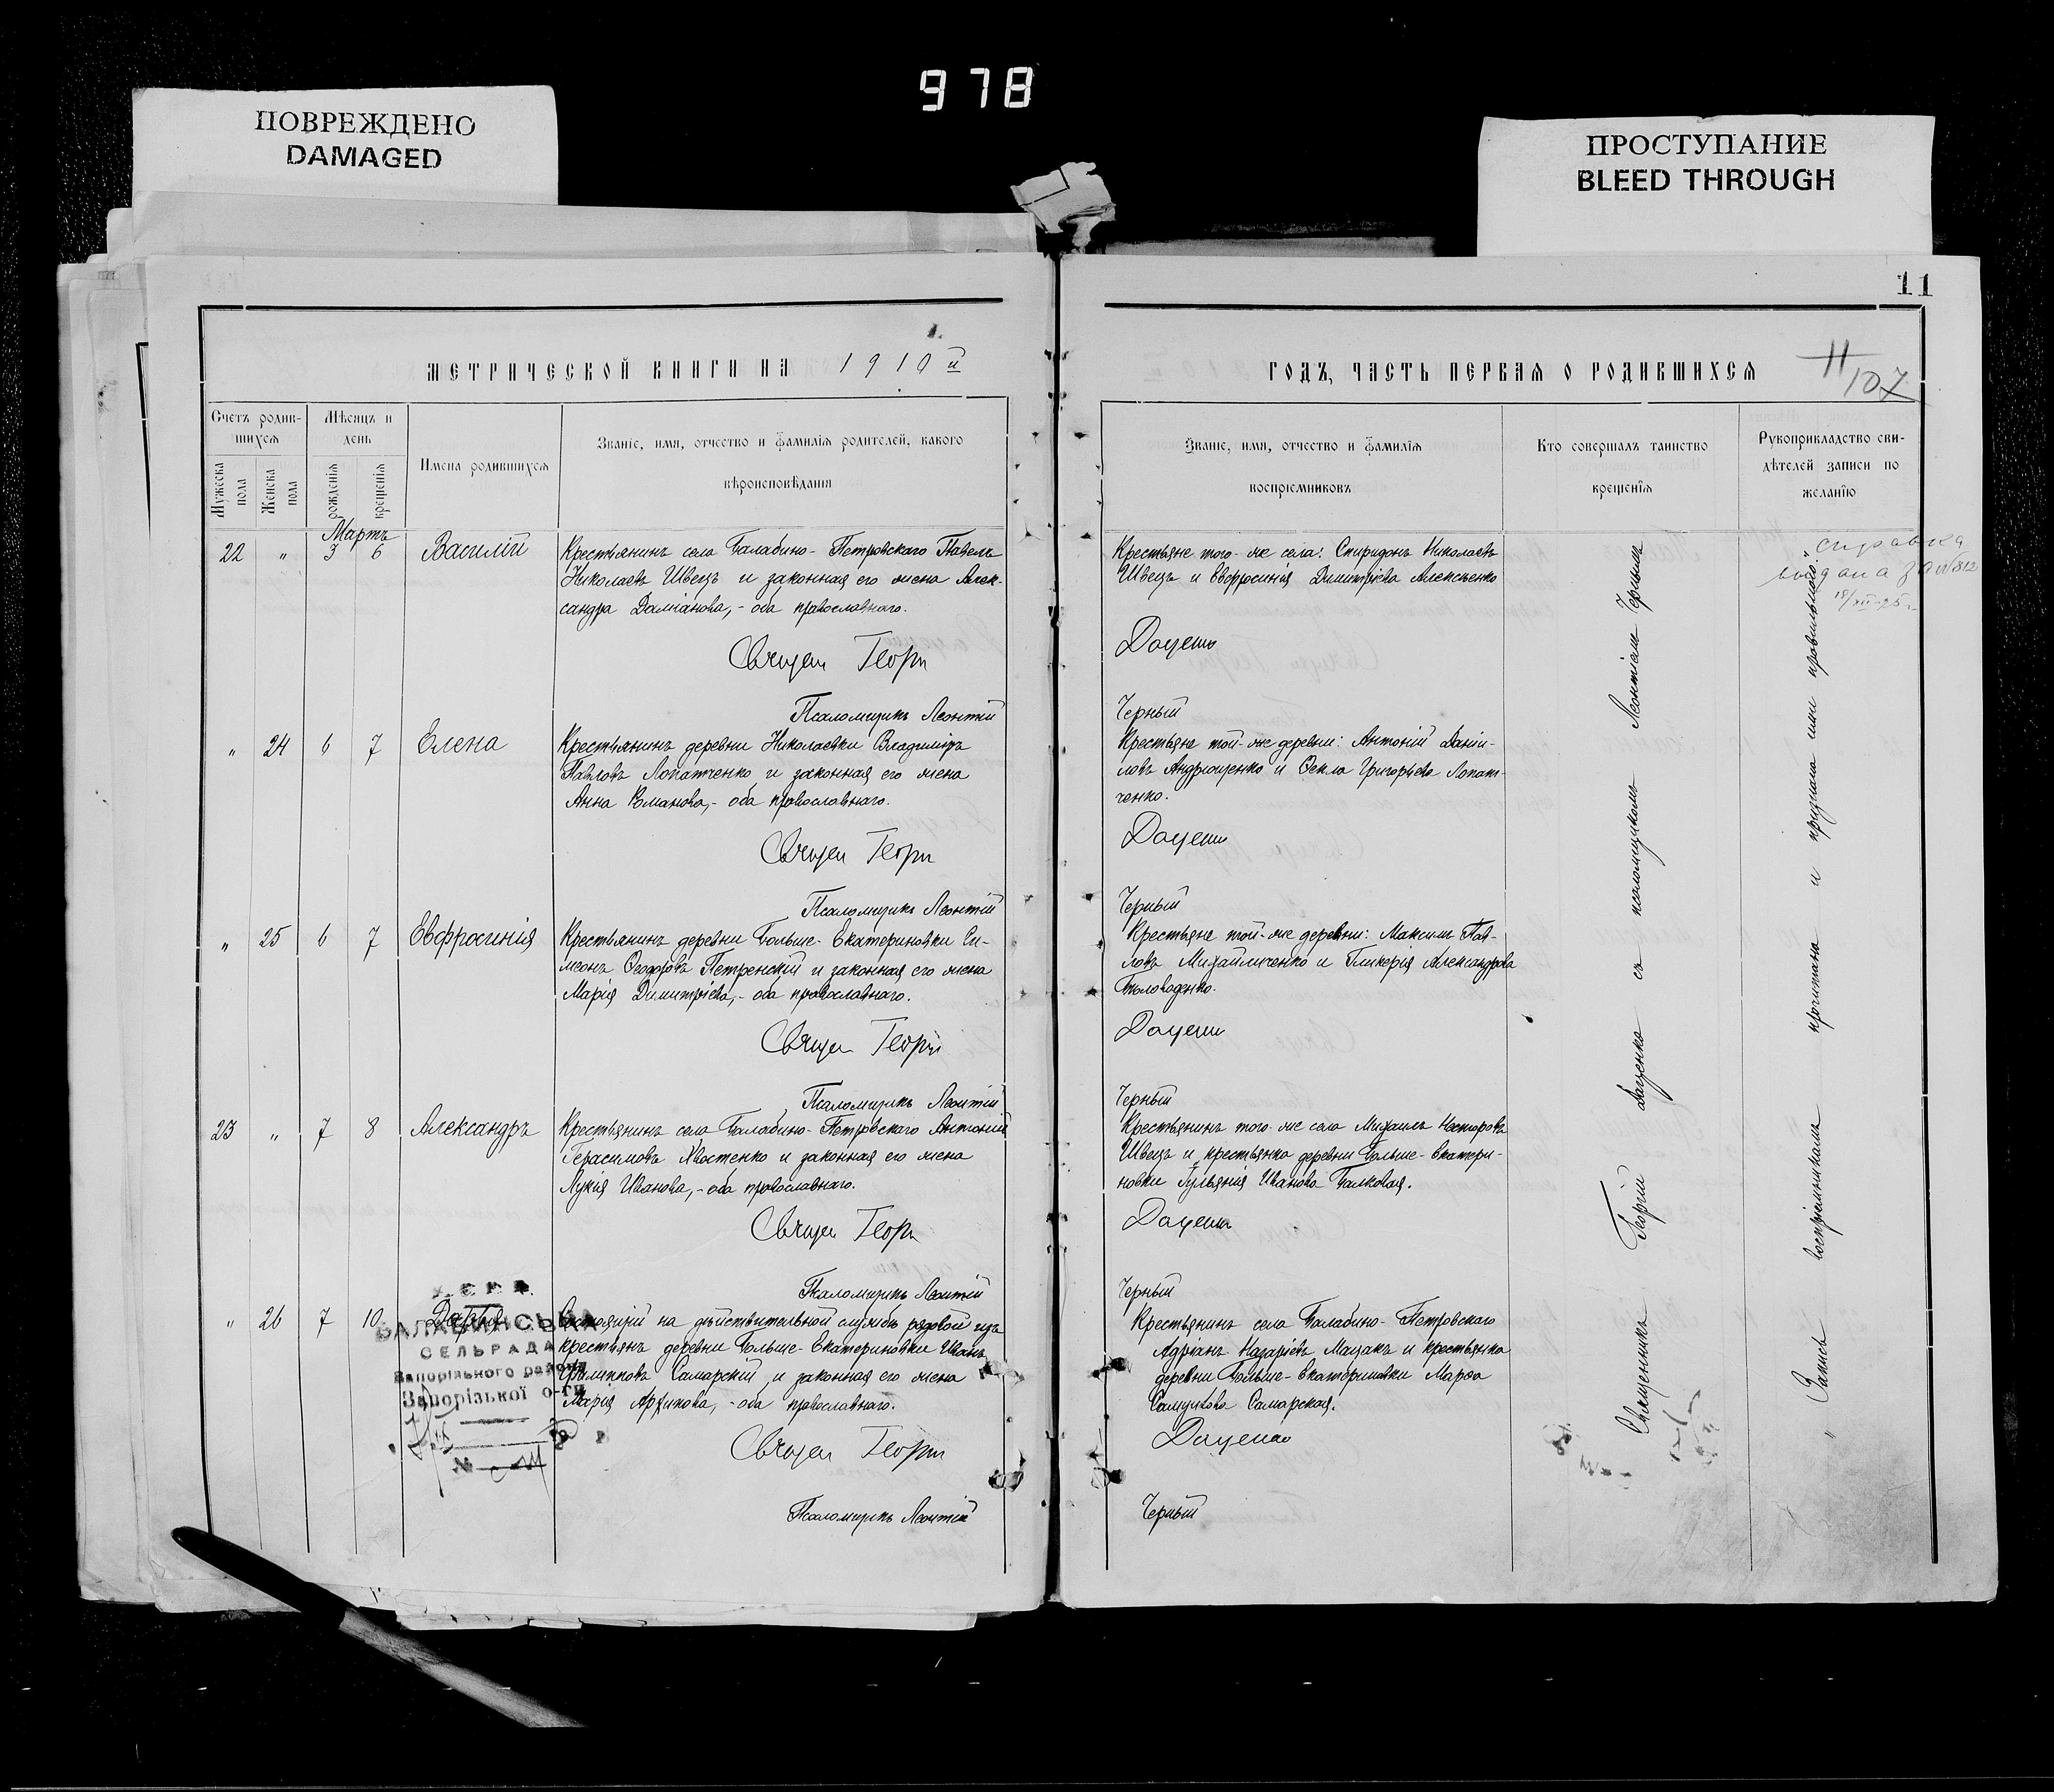 978
ПОВРЕЖДЕНО
DAMAGED
ПРОСТУПАНИЕ
BLEED THROUGH
МЕТРИЧЕСКОЙ КНИГИ НА 1910й
Счетъ родив-
шихся
Мужеска пола
Женска пола
Мѣсяцъ и
день
рожденія
крещенія
Имена родившихся
Званіе, имя, отчество и фамилія родителей, какого
вѣроисповѣданія
Мартъ
22 " 3 6 Василій
Крестьянинъ села Балабино-Петровскаго Павелъ
Николаевъ Швецъ и законная его жена Алек-
сандра Даміанова,- оба православнаго.
Георгі
Псаломщикъ Леонтій
" 24 6 7 Елена
Крестьянинъ деревни Николаевки Владиміръ
Павловъ Лопатченко и законная его жена
Анна Романова,- оба православнаго.
Георгі
Псаломщикъ Леонтій
" 25 6 7 Евфросинія
Крестьянинъ деревни Больше-Екатериновки Си-
меонъ Ѳеодоровъ Петренскій и законная его жена
Марія Димитріева,- оба православнаго.
Георгій
Псаломщикъ Леонтій
23 " 7 8 Александръ
Крестьянинъ села Балабино-Петровскаго Антоній
Герасимовъ Хвостенко и законная его жена
Лукія Иванова,- оба православнаго.
Георгі
Псаломщикъ Леонтій
" 26 7 10 Дарья
Состоящій на дѣйствительной службѣ рядовой изъ
крестьянъ деревни Больше-Екатериновки Иванъ
Филипповъ Самарскій и законная его жена
Марія Архипова,- оба православнаго.
Георгі
Псаломщикъ Леонтій
БАЛАБИНСЬКА
СЕЛЬРАДА
Запорізького району
Запорізької о-ги
№
11
ГОДЪ, ЧАСТЬ ПЕРВАЯ О РОДИВШИХСЯ
11
107
Званіе, имя, отчество и фамилія
воспріемниковъ
Кто совершалъ таинство
крещенія
Рукоприкладство сви-
дѣтелей записи по
желанію
Крестьяне того-же села: Спиридонъ Николаевъ
Швецъ и Евфросинія Димитріева Алексѣенко
Доценко
Черный
Крестьяне той-же деревни: Антоній Даніи-
ловъ Андрющенко и Ѳекла Григорьева Лопат-
ченко.
Доценко
Черный
Крестьяне той-же деревни: Максимъ Пав-
ловъ Михайличенко и Гликерія Александрова
Бѣловоденко.
Доценко
Черный
Крестьянинъ того-же села Михаилъ Несторовъ
Швецъ и крестьянка деревни Больше-Екатери-
новки Іульянія Иванова Балковая.
Доценко
Черный
Крестьянинъ села Балабино-Петровскаго
Адріанъ Назаріевъ Мацакъ и крестьянка
деревни Больше-Екатериновки Марѳа
Самуилова Самарская.
Доценко
Черный
Священникъ Георгій Доценко съ псаломщикомъ Леонтіемъ Чернымъ
" Запись воспріемникамъ прочитана и признана ими правильною."
справка
выдана за № 812
18/XII-25 г.